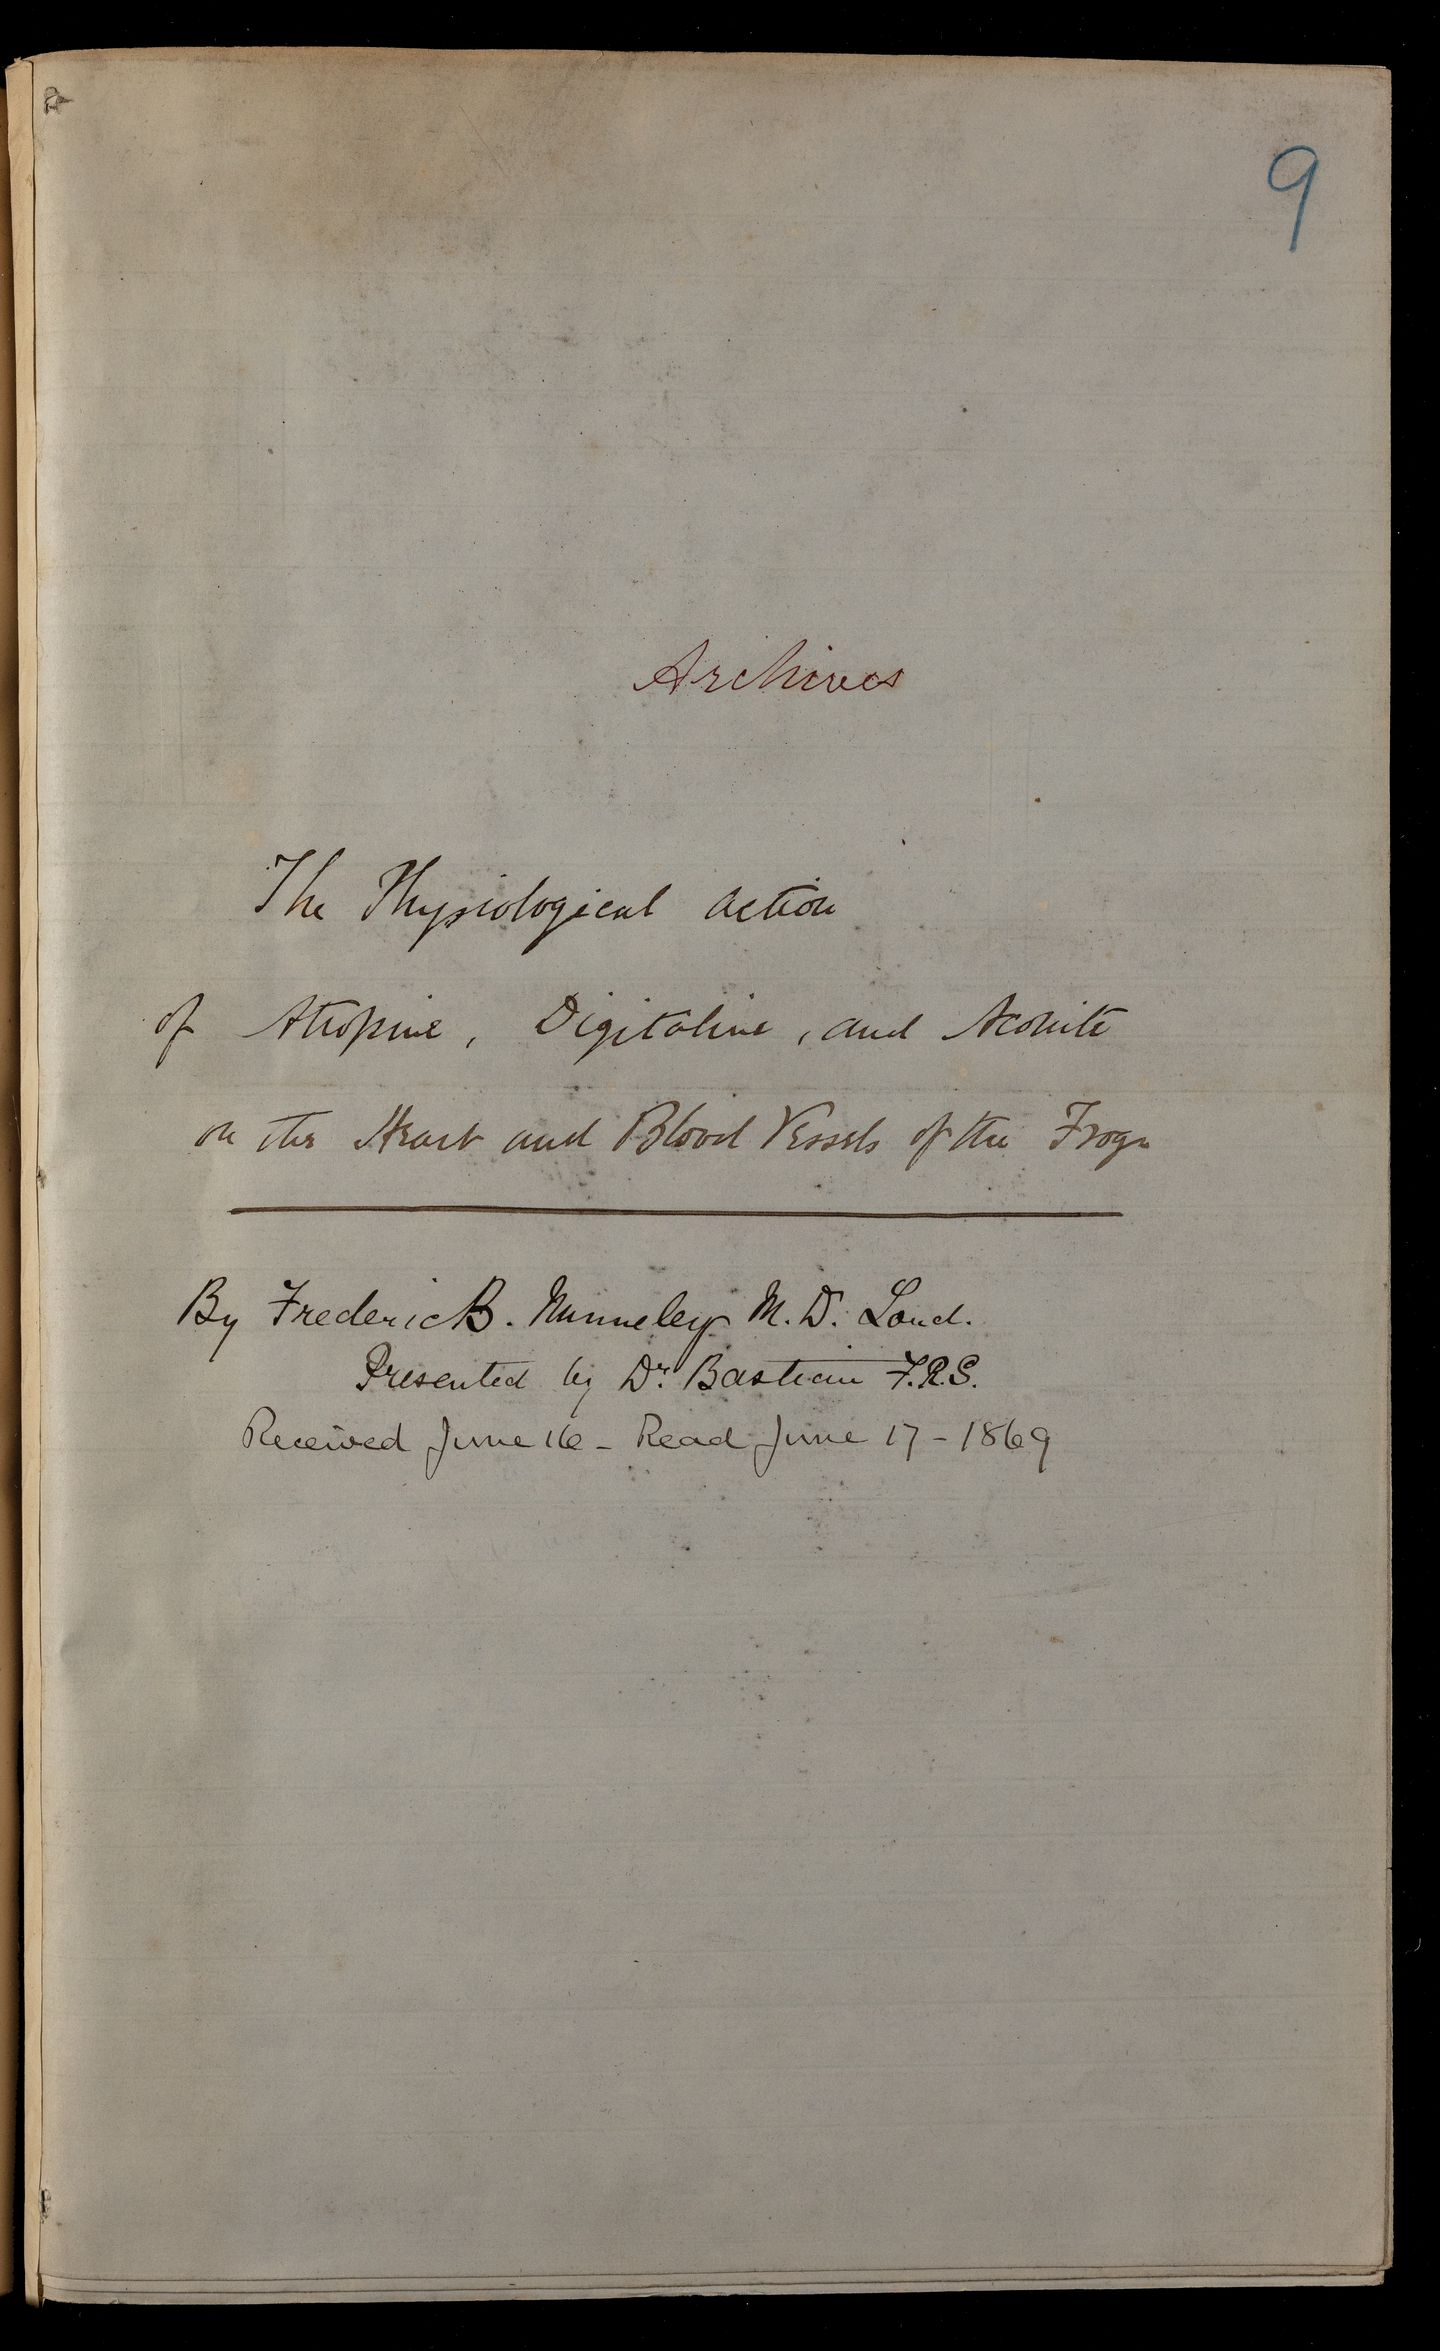 9
Archives
The Physiological action
of Atropine, Digitaline, and Aconite
on the Heart and Blood Vessels of the Frog
By Frederic B. Nunneley M.D. Lond.
Presented by Dr. Bastian F.R.S.
Received June 16 - Read June 17 - 1869